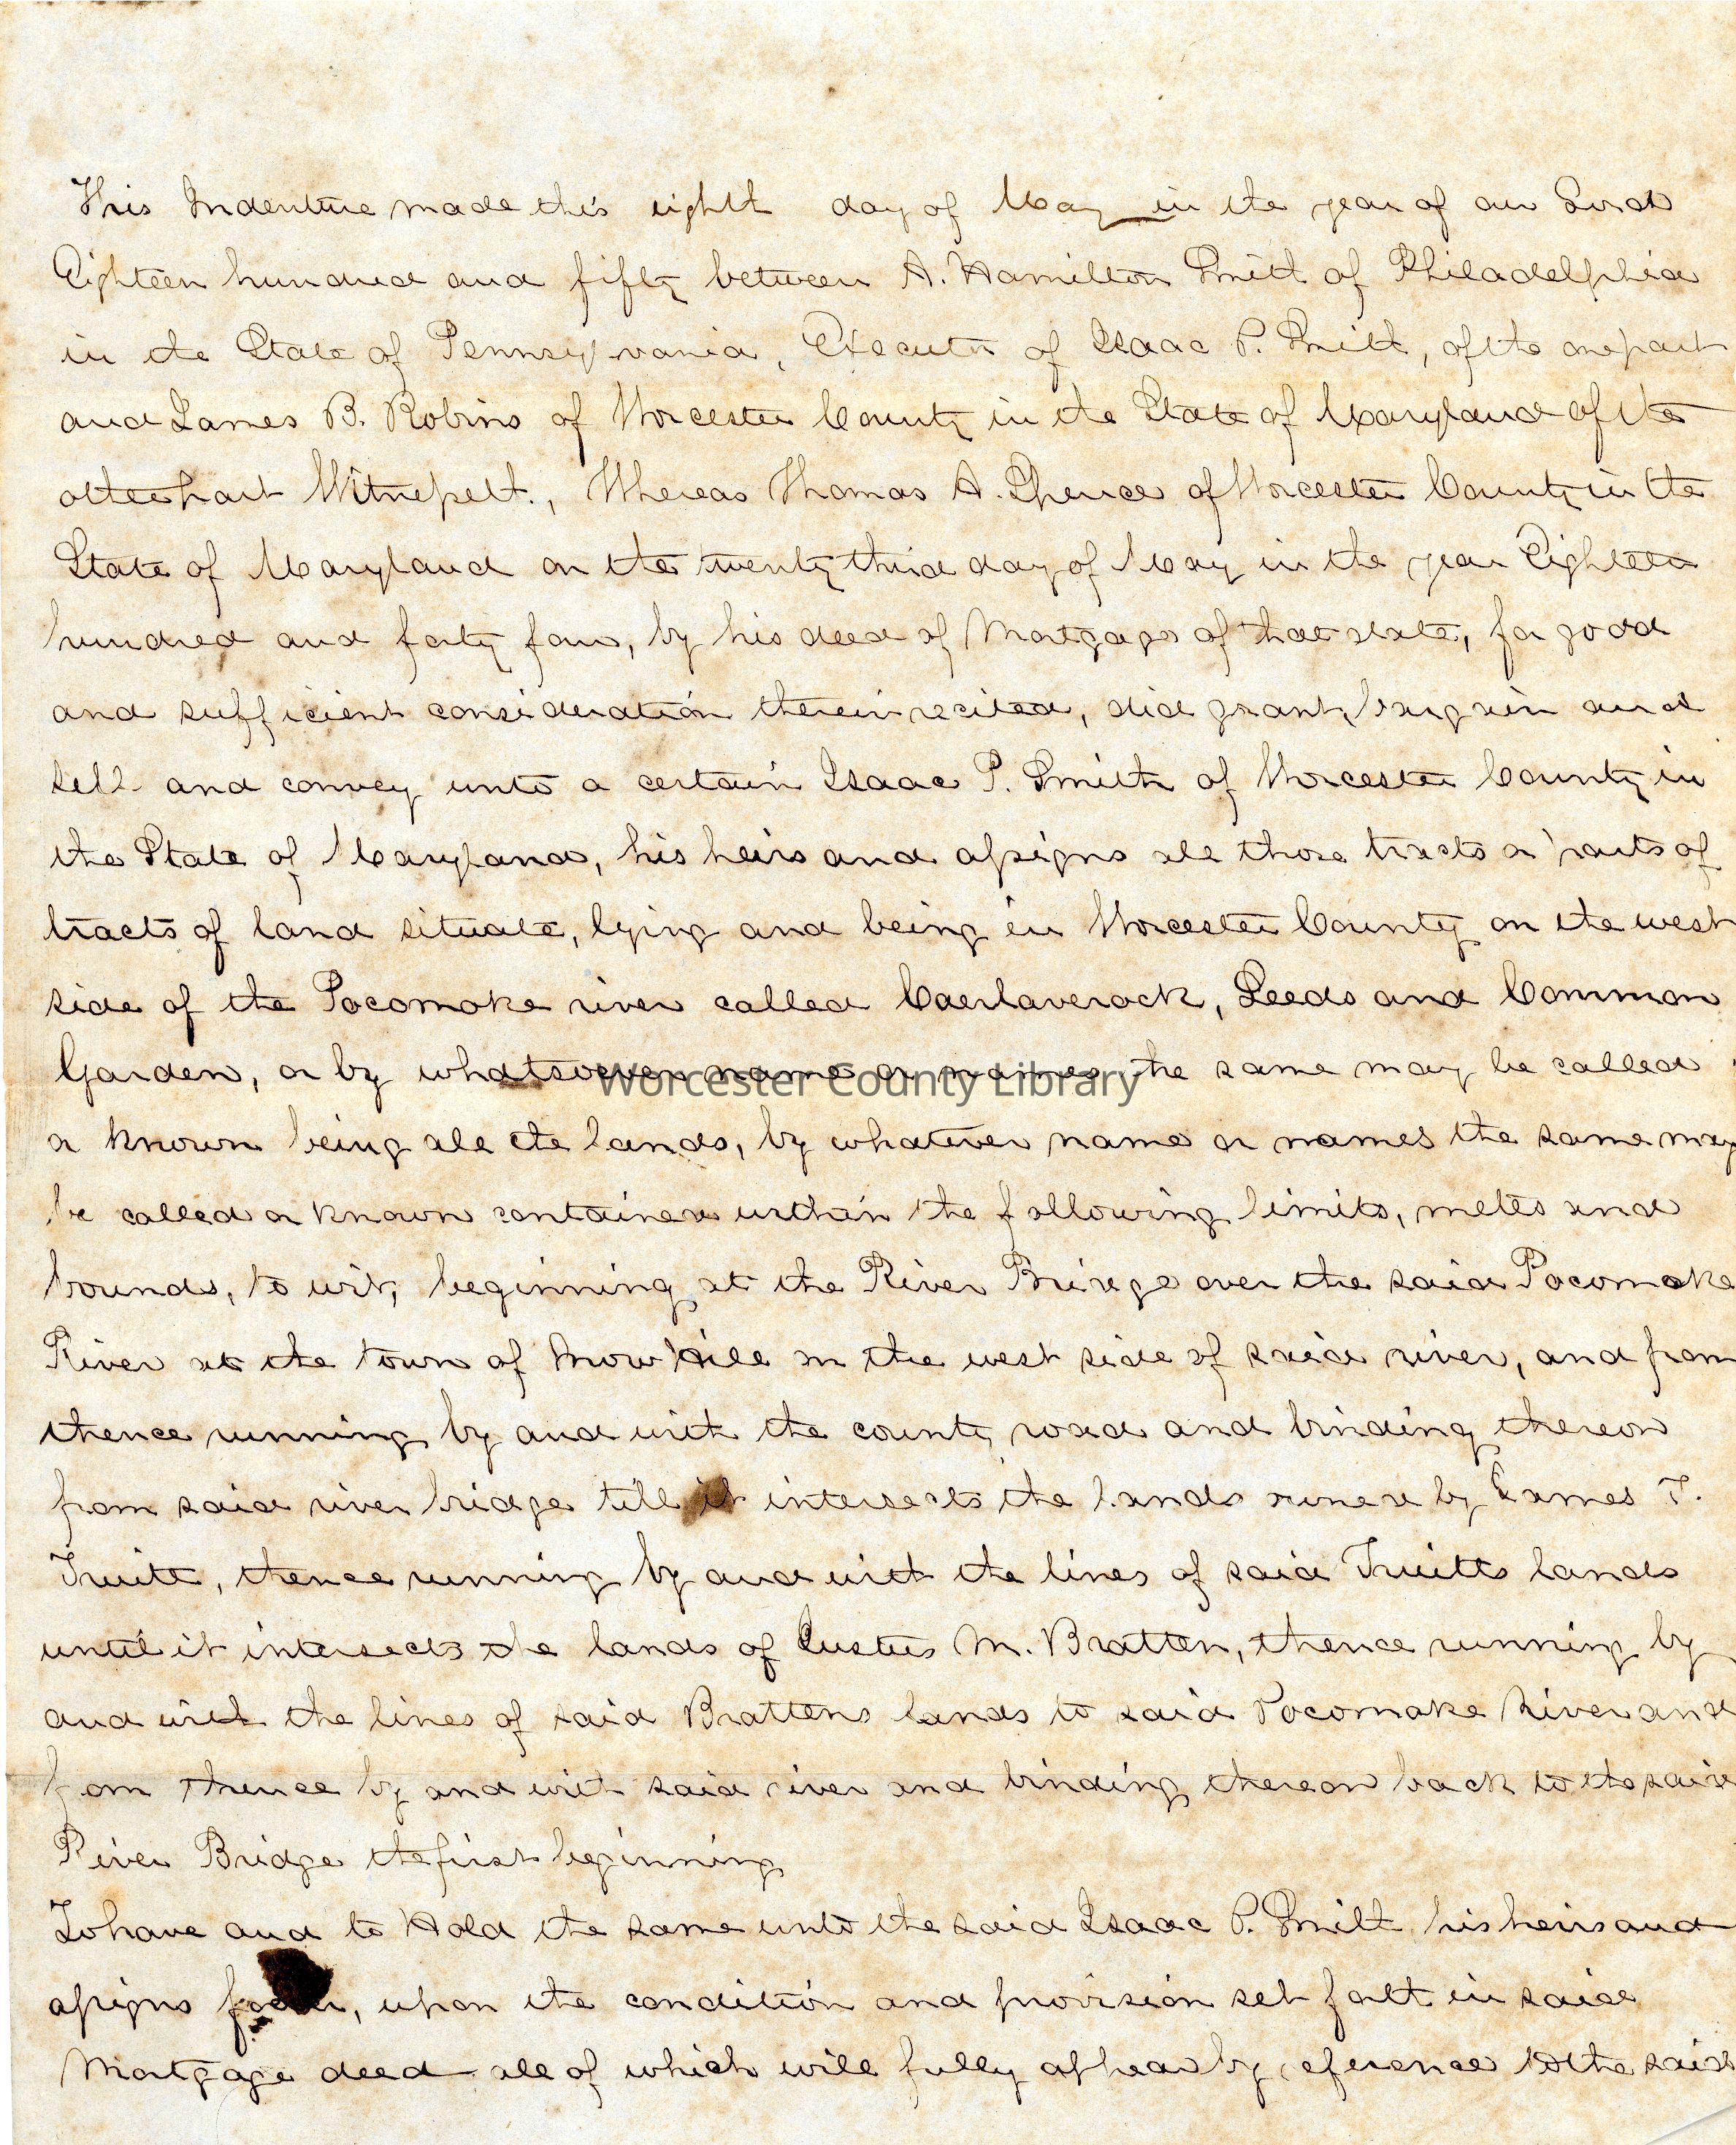 This Indenture made this eighth day of May in the year of our Lord
Eighteen hundred and fifty between A. Hamilton Smith of Philadelphia
in the State of Pennsylvania, Executor of Isaac P. Smith, of the one part
and James B. Robins of Worcester County in the State of Maryland of the
other part Witnesseth., Whereas Thomas A. Spence of Worcester County in the
State of Maryland on the twenty third day of May in the year Eighteen
hundred and forty four, by his deed of Mortgage of that date, for good
and sufficient consideration therein recited, did grant, bargain and
sell and convey unto a certain Isaac P. Smith of Worcester County in
the State of Maryland, his heirs and assigns all those tracts or parts of
tracts of land situate, lying and being in Worcester County on the west
side of the Pocomoke river called Caerlaverock, Leeds and Common
Garden, or by whatsoever name or names the same may be called
Worcester County Library
or known being all the lands, by whatever name or names the same may
be called or known contained within the following limits, metes and
bounds, to wit, beginning at the River Bridge over the said Pocomoke
River at the town of Snow Hill on the west side of said river, and from
thence running by and with the county road and binding thereon
from said river bridge till it intersects the lands owned by James T.
Truitt, thence running by and with the lines of said Truitts lands
until it intersects the lands of Custus M. Bratten, thence running by
and with the lines of said Brattens lands to said Pocomoke River and
from thence by and with said river and binding thereon back to the said
River Bridge the first beginning
To have and to Hold the same unto the said Isaac P. Smith his heirs and
assigns forever, upon the condition and provision set forth in said
Mortgage deed all of which will fully appear by reference to the said